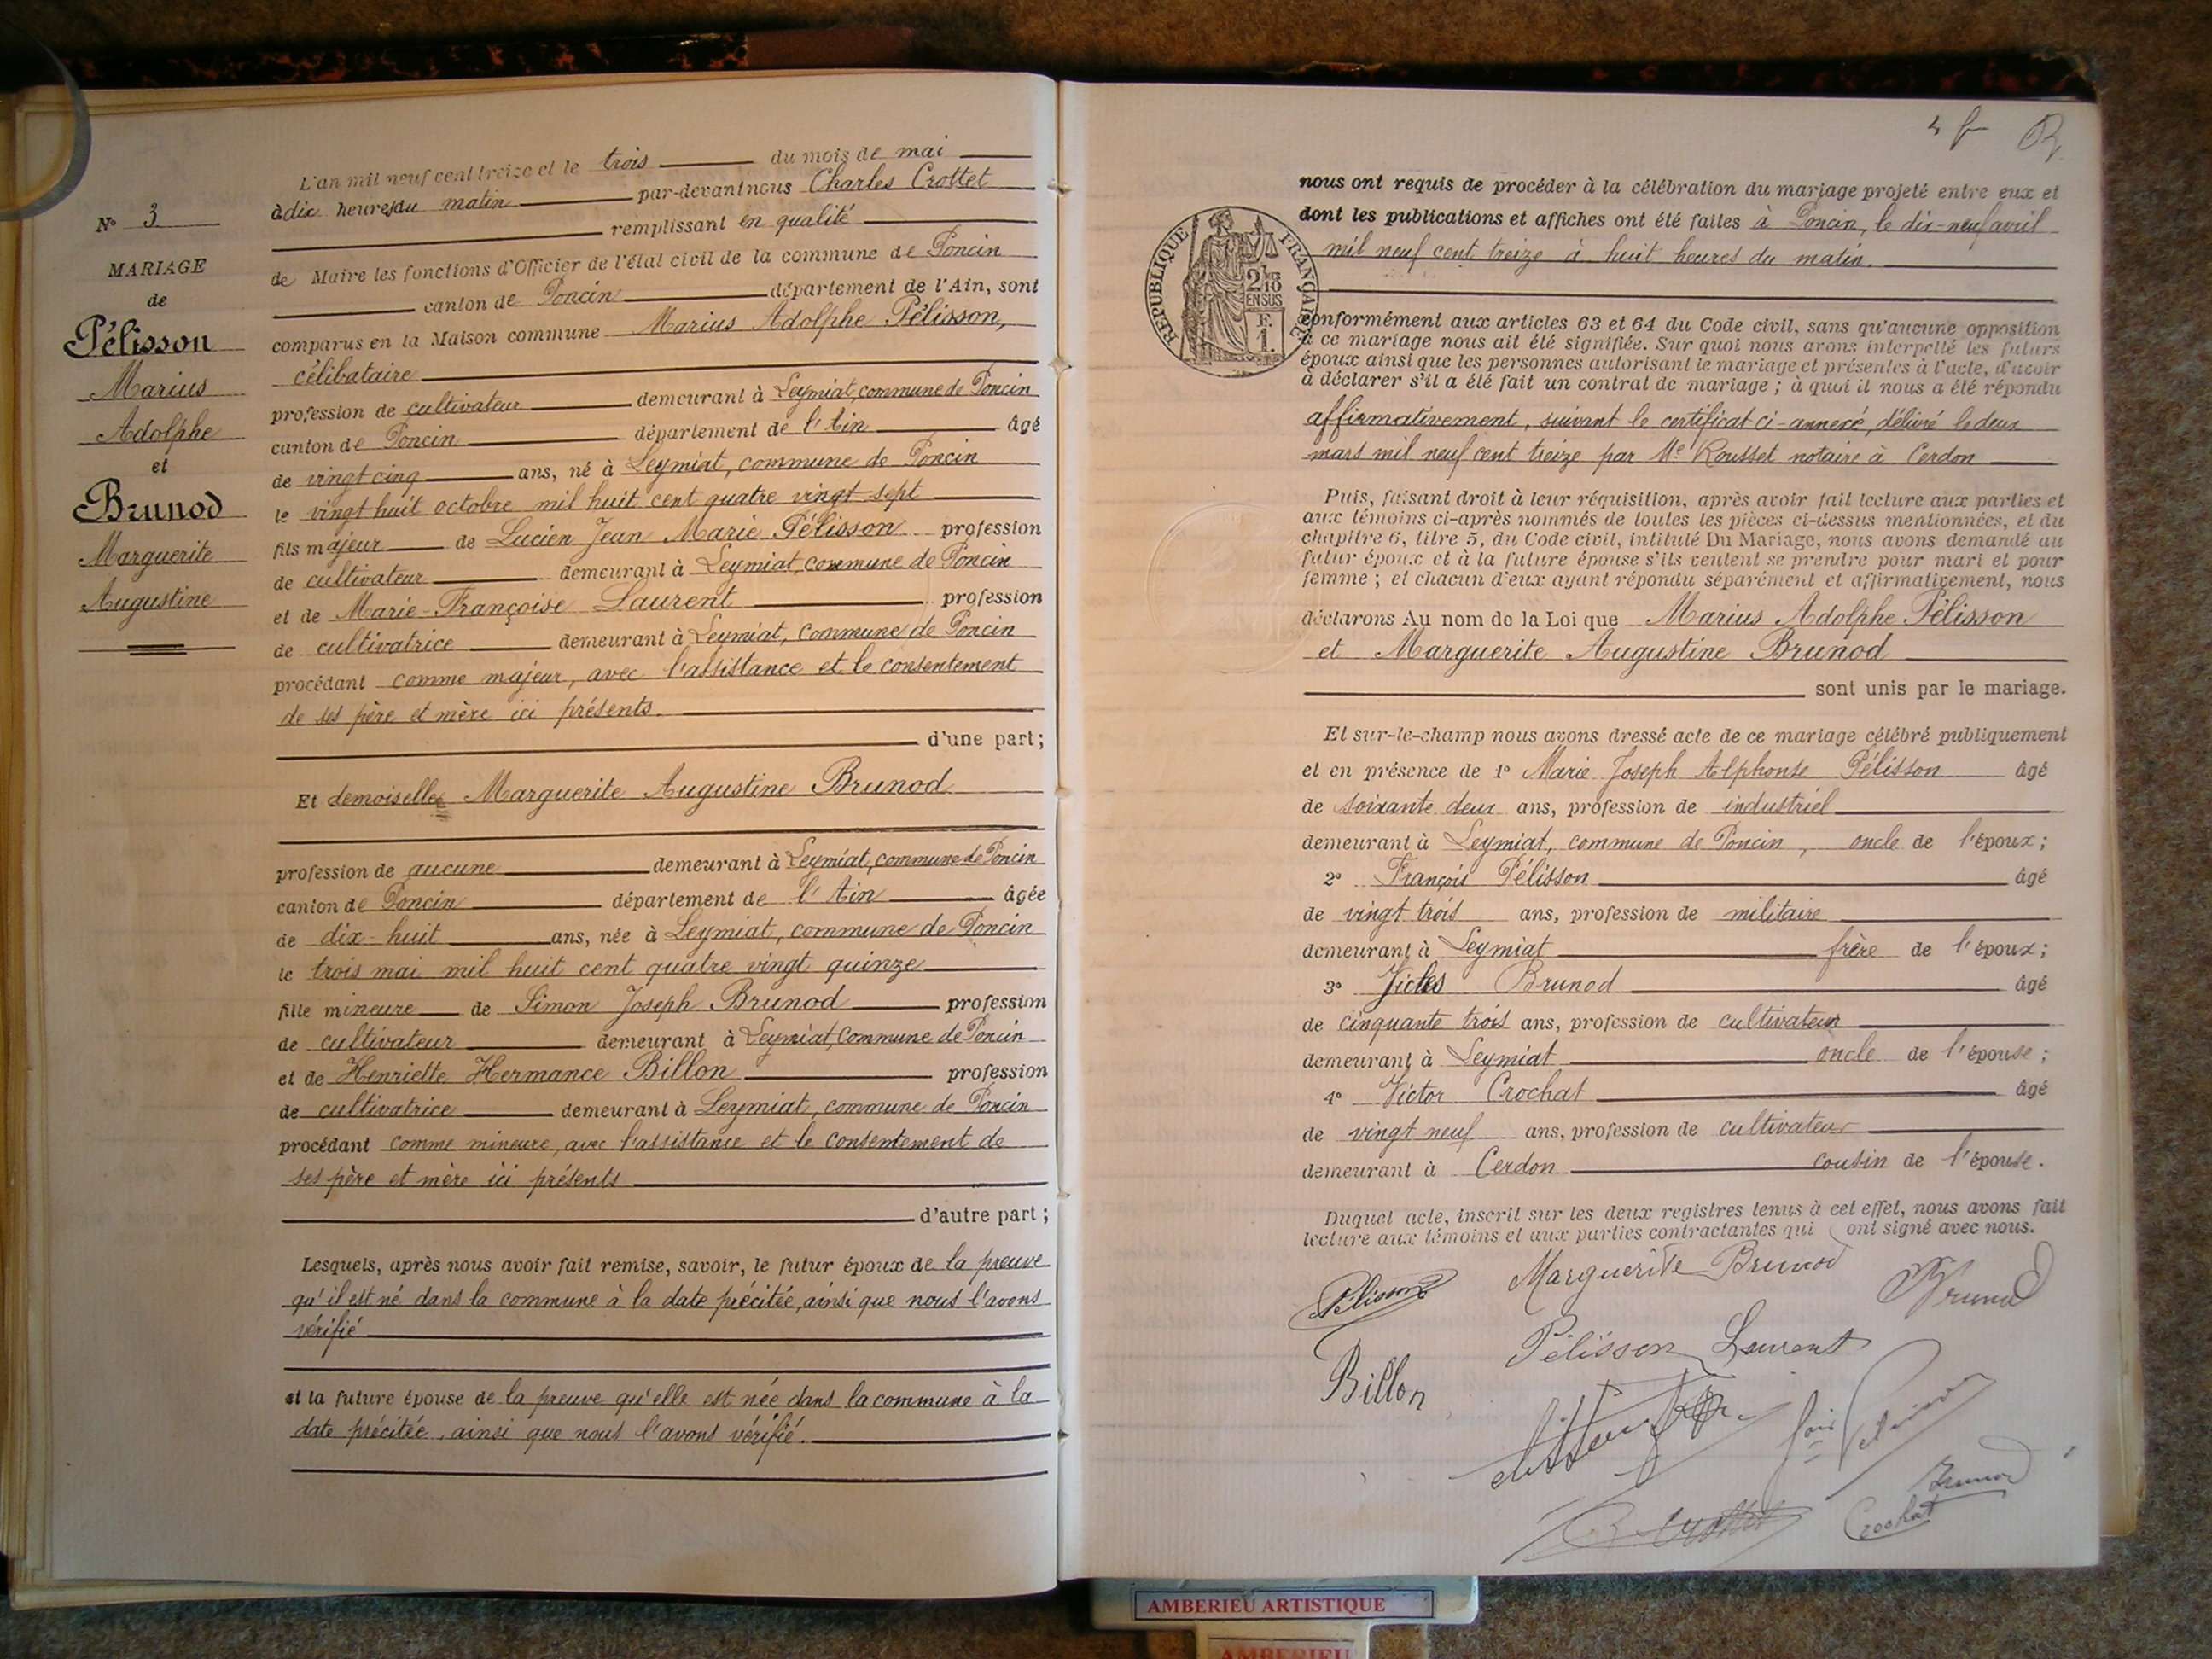 N° 3
MARIAGE
de
Pélisson
Marius
Adolphe
et
Brunod
Marguerite
Augustine
L'an mil neuf cent treize et le trois du mois de mai
à dix heures du matin par-devant nous Charles Crottet
remplissant en qualité
de Maire les fonctions d'Officier de l'état civil de la commune de Poncin
canton de Poncin département de l'Ain, sont
comparus en la Maison commune Marius Adolphe Pélisson,
célibataire
profession de cultivateur demeurant à Leymiat, commune de Poncin
canton de Poncin département de l'Ain âgé
de vingt cinq ans, né à Leymiat, commune de Poncin
le vingt huit octobre mil huit cent quatre vingt sept
fils majeur de Lucien Jean Marie Pélisson profession
de cultivateur demeurant à Leymiat, commune de Poncin
et de Marie-Françoise Laurent profession
de cultivatrice demeurant à Leymiat, commune de Poncin
procédant comme majeur, avec l'assistance et le consentement
de ses père et mère ici présents.
d'une part;
Et demoiselle Marguerite Augustine Brunod
profession de aucune demeurant à Leymiat, commune de Poncin
canton de Poncin département de l'Ain âgée
de dix-huit ans, née à Leymiat, commune de Poncin
le trois mai mil huit cent quatre vingt quinze
fille mineure de Simon Joseph Brunod profession
de cultivateur demeurant à Leymiat, commune de Poncin
et de Henriette Hermance Billon profession
de cultivatrice demeurant à Leymiat, commune de Poncin
procédant comme mineure, avec l'assistance et le consentement de
ses père et mère ici présents
d'autre part;
Lesquels, après nous avoir fait remise, savoir, le futur époux de la preuve
qu'il est né dans la commune à la date précitée, ainsi que nous l'avons
vérifié
et la future épouse de la preuve qu'elle est née dans la commune à la
date précitée, ainsi que nous l'avons vérifié.
RÉPUBLIQUE FRANÇAISE
2/10
EN SUS
F.
1.
nous ont requis de procéder à la célébration du mariage projeté entre eux et
dont les publications et affiches ont été faites à Poncin, le dix-neuf avril
mil neuf cent treize à huit heures du matin.
conformément aux articles 63 et 64 du Code civil, sans qu'aucune opposition
à ce mariage nous ait été signifiée. Sur quoi nous avons interpellé les futurs
époux ainsi que les personnes autorisant le mariage et présentes à l'acte, d'avoir
à déclarer s'il a été fait un contrat de mariage; à quoi il nous a été répondu
affirmativement, suivant le certificat ci-annexé, délivré le deux
mars mil neuf cent treize par Me Rousset notaire à Cerdon
Puis, faisant droit à leur réquisition, après avoir fait lecture aux parties et
aux témoins ci-après nommés de toutes les pièces ci-dessus mentionnées, et du
chapitre 6, titre 5, du Code civil, intitulé Du Mariage, nous avons demandé au
futur époux et à la future épouse s'ils veulent se prendre pour mari et pour
femme; et chacun d'eux ayant répondu séparément et affirmativement, nous
déclarons Au nom de la Loi que Marius Adolphe Pélisson
et Marguerite Augustine Brunod
sont unis par le mariage.
Et sur-le-champ nous avons dressé acte de ce mariage célébré publiquement
et en présence de 1° Marie Joseph Alphonse Pélisson âgé
de soixante deux ans, profession de industriel
demeurant à Leymiat, commune de Poncin, oncle de l'époux;
2° François Pélisson âgé
de vingt trois ans, profession de militaire
demeurant à Leymiat frère de l'époux;
3° Brunod âgé
de cinquante trois ans, profession de cultivateur
demeurant à Leymiat oncle de l'épouse;
4° Victor Crochat âgé
de vingt neuf ans, profession de cultivateur
demeurant à Cerdon cousin de l'épouse.
Duquel acte, inscrit sur les deux registres tenus à cet effet, nous avons fait
lecture aux témoins et aux parties contractantes qui ont signé avec nous.
Pélisson Marguerite Brunod Brunod
Billon Pélisson Laurent
Brunod
Crochat
AMBERIEU ARTISTIQUE
AMBERIEU